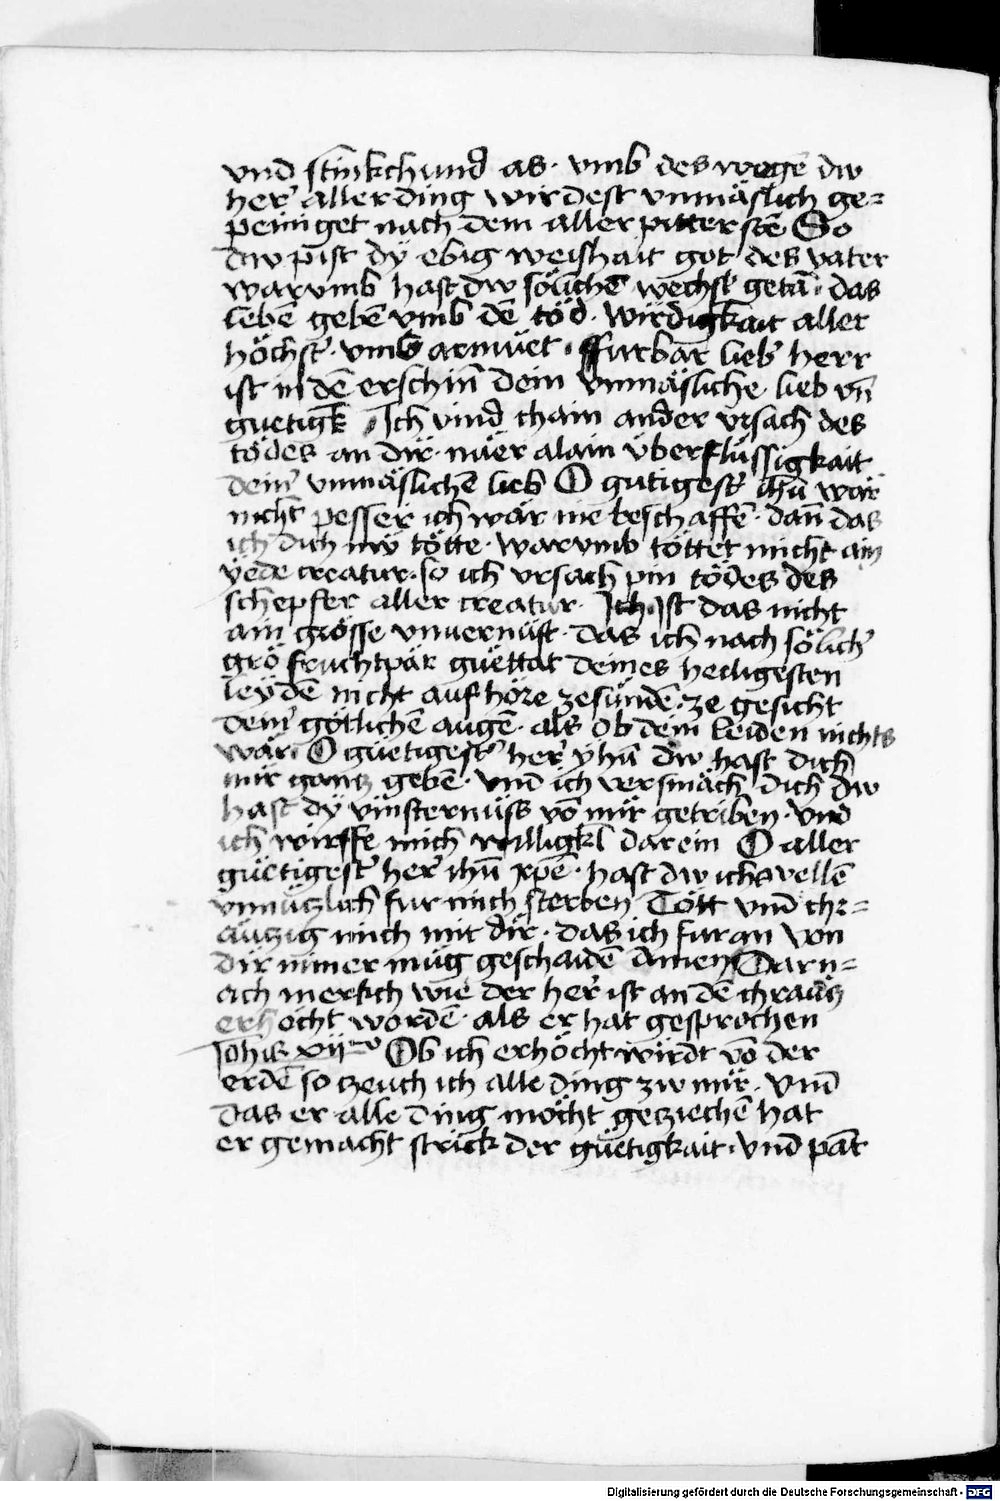 vnd stinkchund as · vmb des wegē dw
her̄ aller ding wirdest vnmäslich ge=
peiniget nach dem aller pittersтē So
dw pist dÿ ebig weishait got des vater
warvmb hast dw sölichē wechsl getā · das
lebē gebē vmb dē töd · wirdigkait aller
höchst̄ · vmb armüet · ffurbar lieb̄ herr
ist in dē erschin̄ dein vnmäsliche lieb vn̄
guetigk̄ Ich vind chain ander vrsach des
tödes an dir · nüer alain überflüssigkait
dein̄ vnmäslichē lieb O gutigest̄ ihū wär
nicht pesser ich wär nie beschaffē · dan̄ das
ich dich mÿ tötte · warvmb töttet micht ain
yede creatur · so ich vrsach pin tödes des
schepfer aller creatur · Ich Ist das nicht
ain grösse vnuernüft · das ich nach sölich̄
grö fruchtpär guëttat deines heiligesten
leydē nicht aufhöre zesündē · ze gesicht
dein̄ götlichē augē · als ob dein̄ leiden nichts
wär O güetigest̄ her̄ yhū dw hast dich
mir gancz gebē · vnd ich versmäch dich dw
hast dÿ vinsternüss vō mir getriben · vnd
ich wirffe mich willigkl̄ darein O aller
güetigest̄ her̄ ihū xpē · hast dw ichs wellē
vnnüczlich fur mich sterben Tött vnd chr=
äuczig mich mit dir · das ich furan von
dir nimer müg geschaidē Amen Darn=
ach merkch wie der her̄ ist an dē chräucz
erhöcht wordē · als er hat gesprochen
Joh̄is xijͦ Ob ich erhöcht wirdt vō der
erdē so zeuch ich alle ding zw mir · vnd
das er alle ding möcht geziechē hat
er gemacht strick der güetigkait · vnd pāt
Digitalisierung gefördert durch die Deutsche Forschungsgemeinschaft - DFG